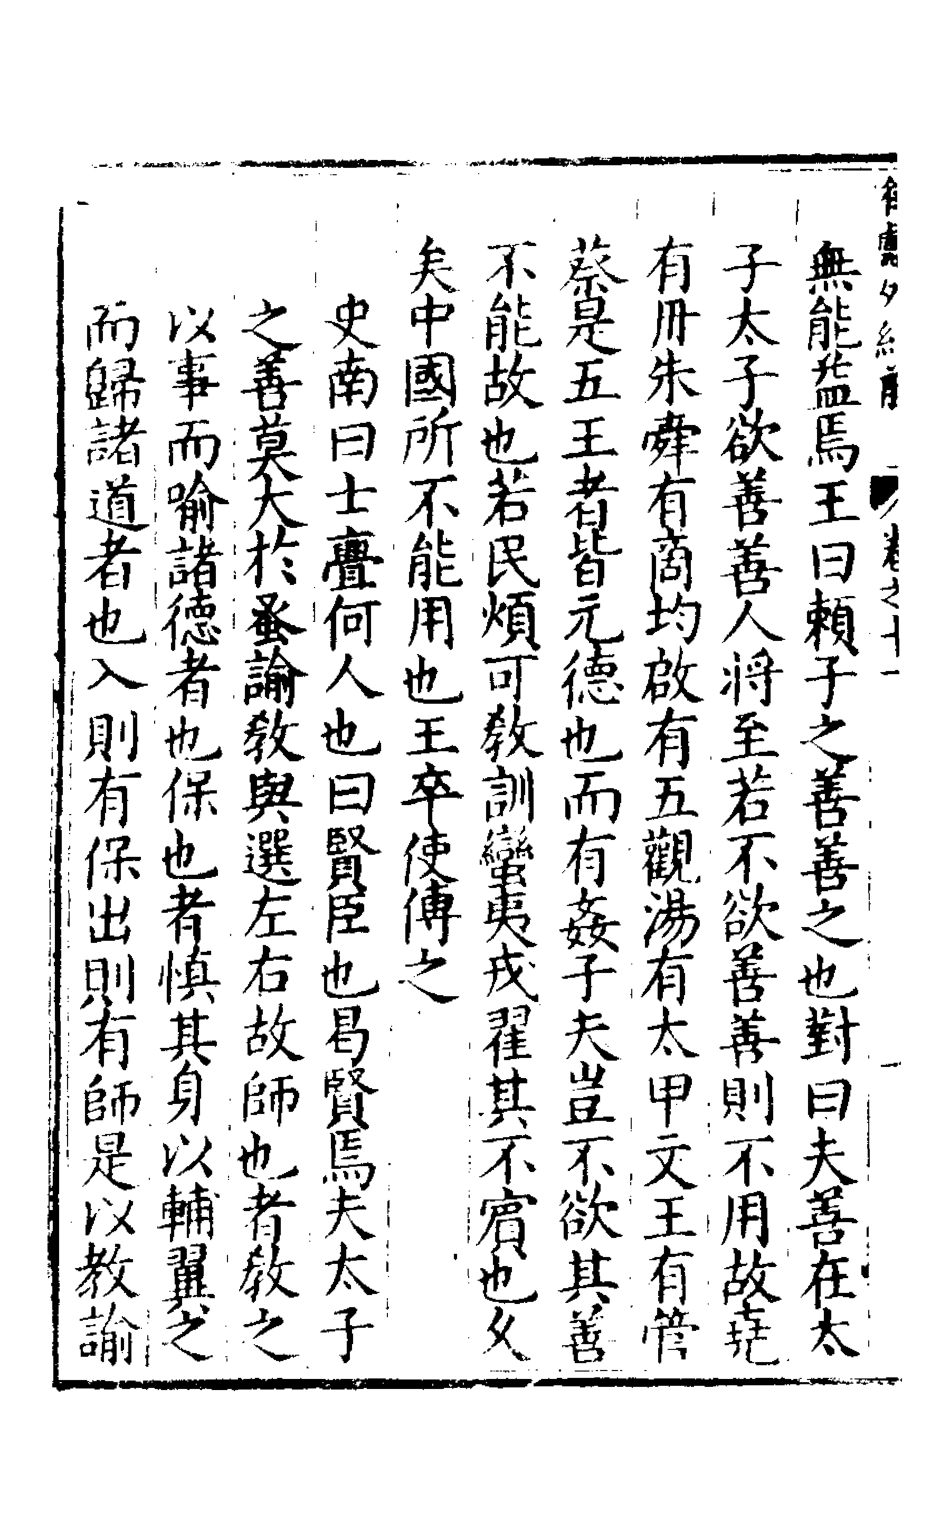 卷之十一
無能益焉王曰賴子之善善之也對曰夫善在太
子太子欲善善人將至若不欲善善則不用故堯
有丹朱舜有商均啟有五觀湯有太甲文王有管
蔡是五王者皆元德也而有姦子夫豈不欲其善
不能故也若民煩可教訓蠻夷戎翟其不賓也久
矣中國所不能用也王卒使傅之
史南曰士亹何人也曰賢臣也曷賢焉夫太子
之善莫大於蚤諭教與選左右故師也者教之
以事而喻諸德者也保也者慎其身以輔翼之
而歸諸道者也入則有保出則有師是以教諭